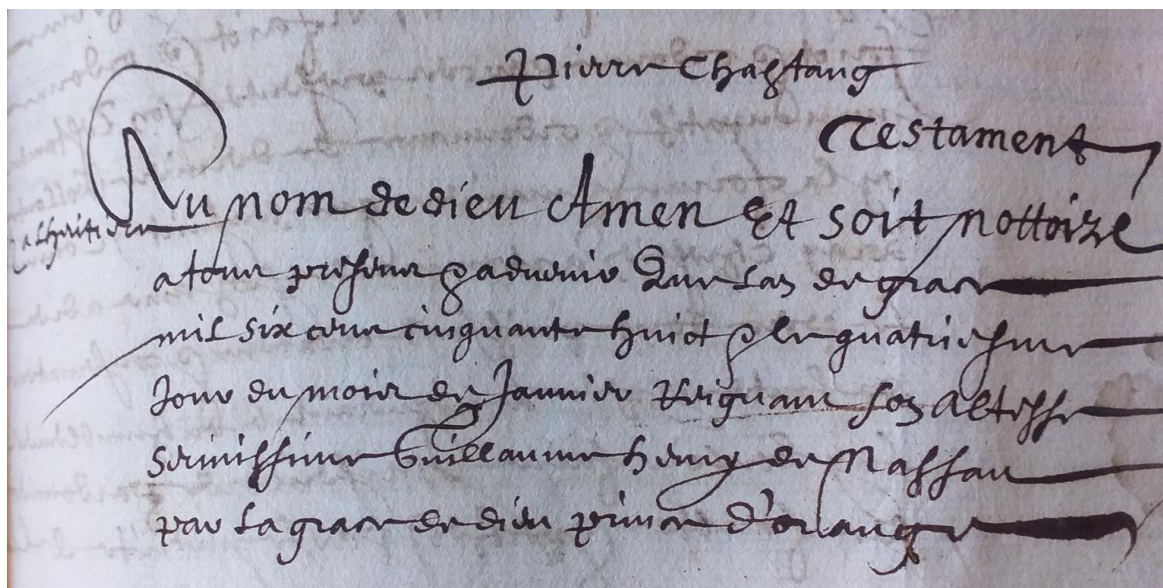 Pierre Chastang
Testament
Au nom de dieu Amen Et soit nottoire
a tous presens & aduenir Que Lan de grace
mil six cens cinquante huict & le quatriesme
Jour du mois de Januier Regnant son Altesse
serenissime Guillaume henry de Nassau
par La grace de dieu prince d'orange